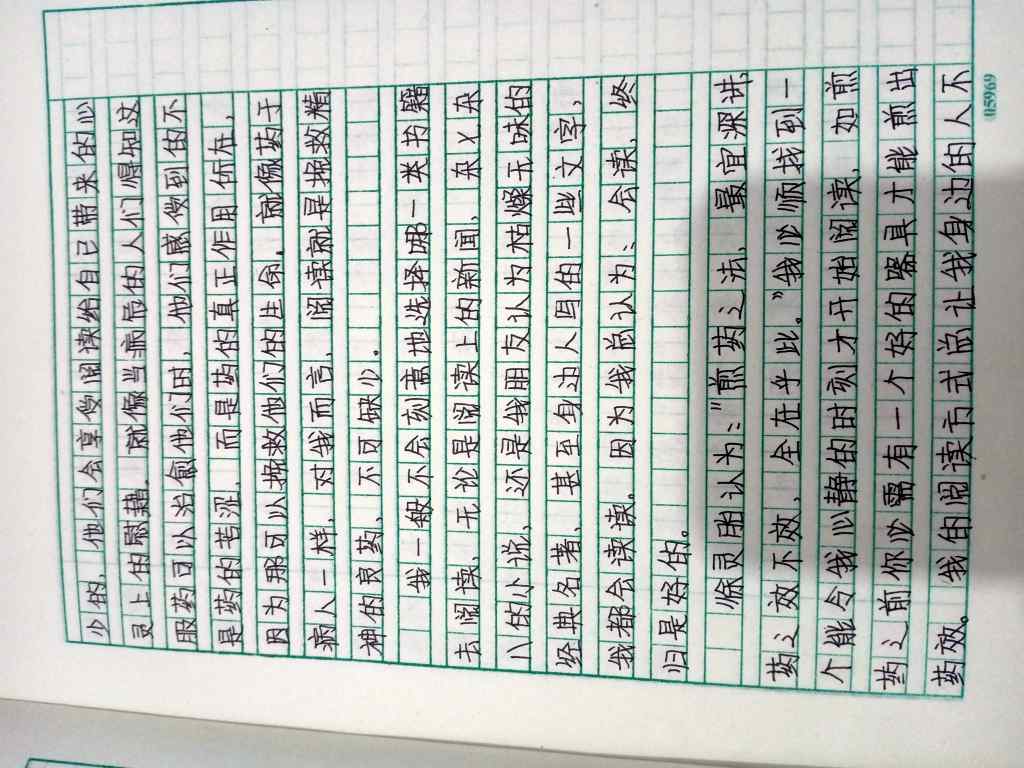 少的，他们会享受阅读给自己带来的心
灵上的慰藉。就像当病危的人们得知这
服药可以治愈他们时，他们感受到的不
是药的苦涩，而是药的真正作用所在，
因为那可以拯救他们的生命，就像药于
病人一样，对我而言，阅读就是拯救精
神的良药，不可缺少。
我一般不会刻意地选择哪一类书籍
去阅读，无论是阅读上的新闻，杂乂杂
八的小说，还是我朋友认为枯燥无味的
经典名著，甚至身边人写的一些文字，
我都会去读读。因为我总认为：会读，终
归是好的。
徐灵胎认为：“煎药之法，最宜深讲，
药之效不效，全在乎此。”我必须找到一
个能令我心静的时刻才开始阅读，如煎
药之前你必需有一个好的器具才能煎出
药效。我的阅读方式总让我身边的人不
115969